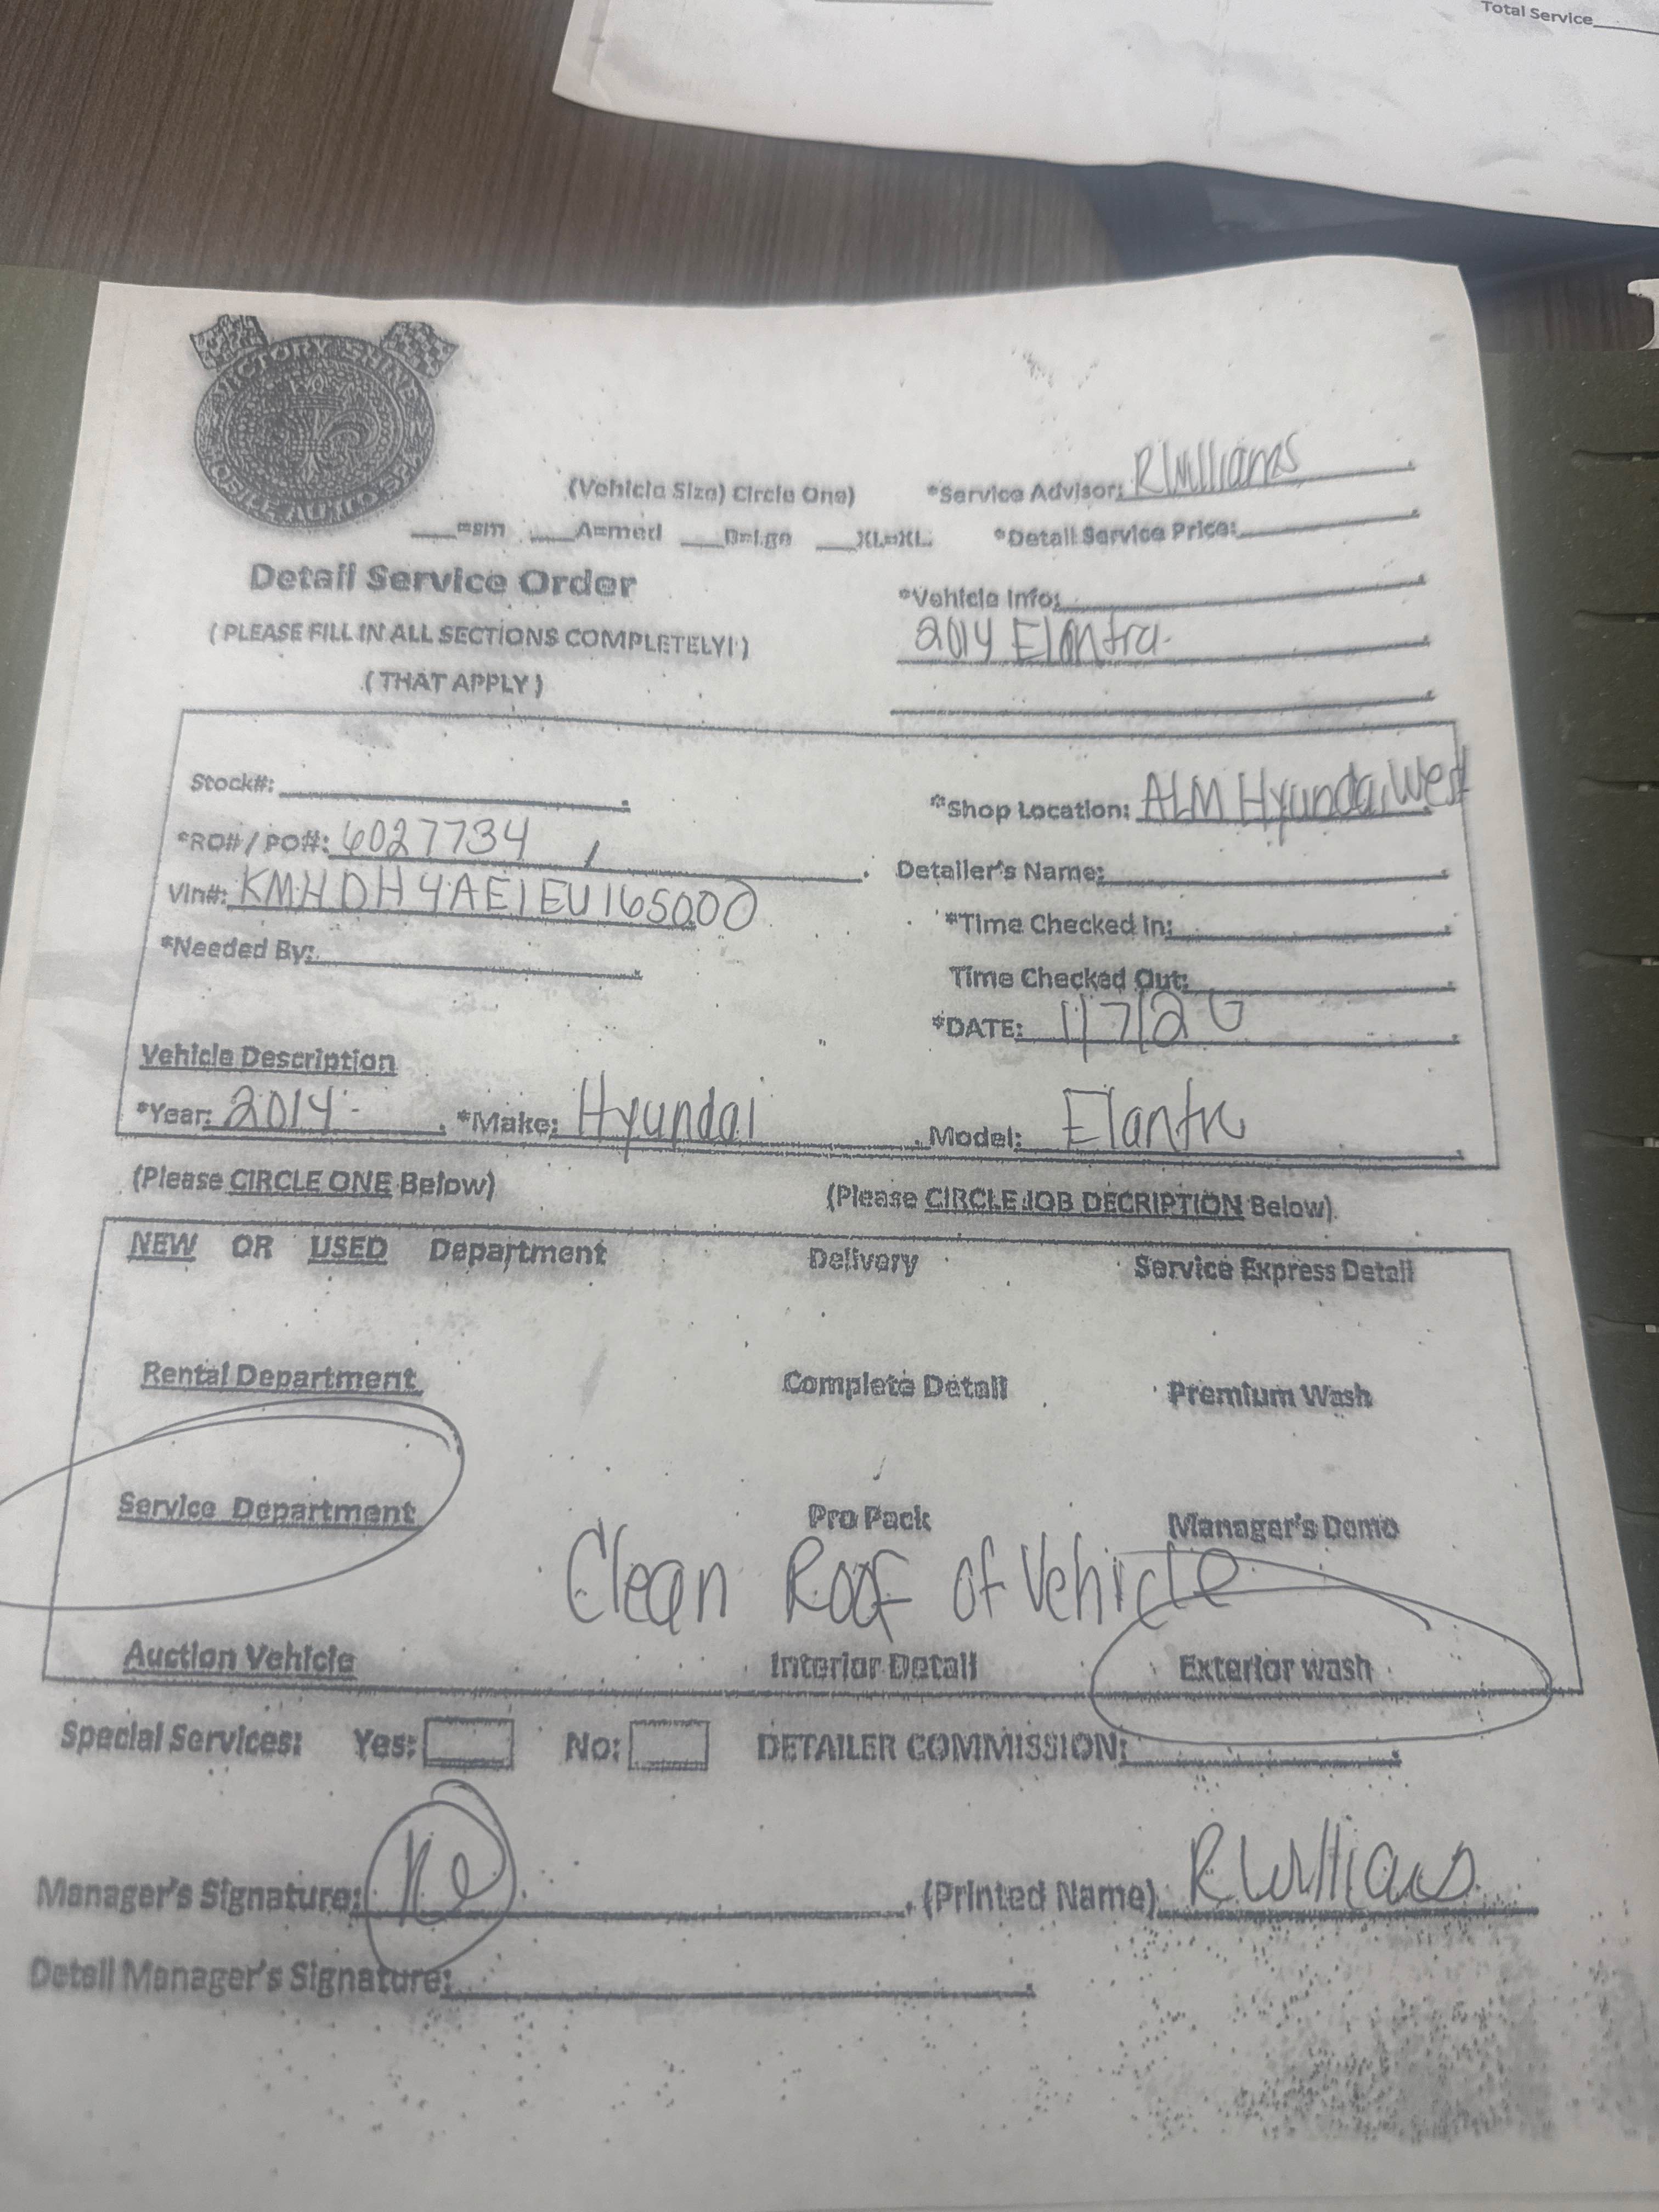 Total Service
VICTORY SHINE
MOBILE AUTO SPA
(Vehicle Size) Circle One) *Service Advisor: R Williams
=sm A=med B=Lge XL=XL *Detail Service Price:
Detail Service Order
*Vehicle Info:
(PLEASE FILL IN ALL SECTIONS COMPLETELY!)
2014 Elantra
(THAT APPLY)
Stock#: *Shop Location: ALM Hyundai West
*RO# / PO#: 6027734 / Detailer's Name:
Vin#: KMHDH4AE1EU165000 *Time Checked In:
*Needed By: Time Checked Out:
*DATE: 1/7/26
Vehicle Description
*Year: 2014 *Make: Hyundai Model: Elantr
(Please CIRCLE ONE Below) (Please CIRCLE JOB DECRIPTION Below)
NEW OR USED Department Delivery Service Express Detail
Rental Department Complete Detail Premium Wash
Service Department Pro Pack Manager's Demo
Clean Roof of Vehicle
Auction Vehicle Interior Detail Exterior wash
Special Services: Yes: No: DETAILER COMMISSION:
Manager's Signature: (Printed Name) R Williams
Detail Manager's Signature: